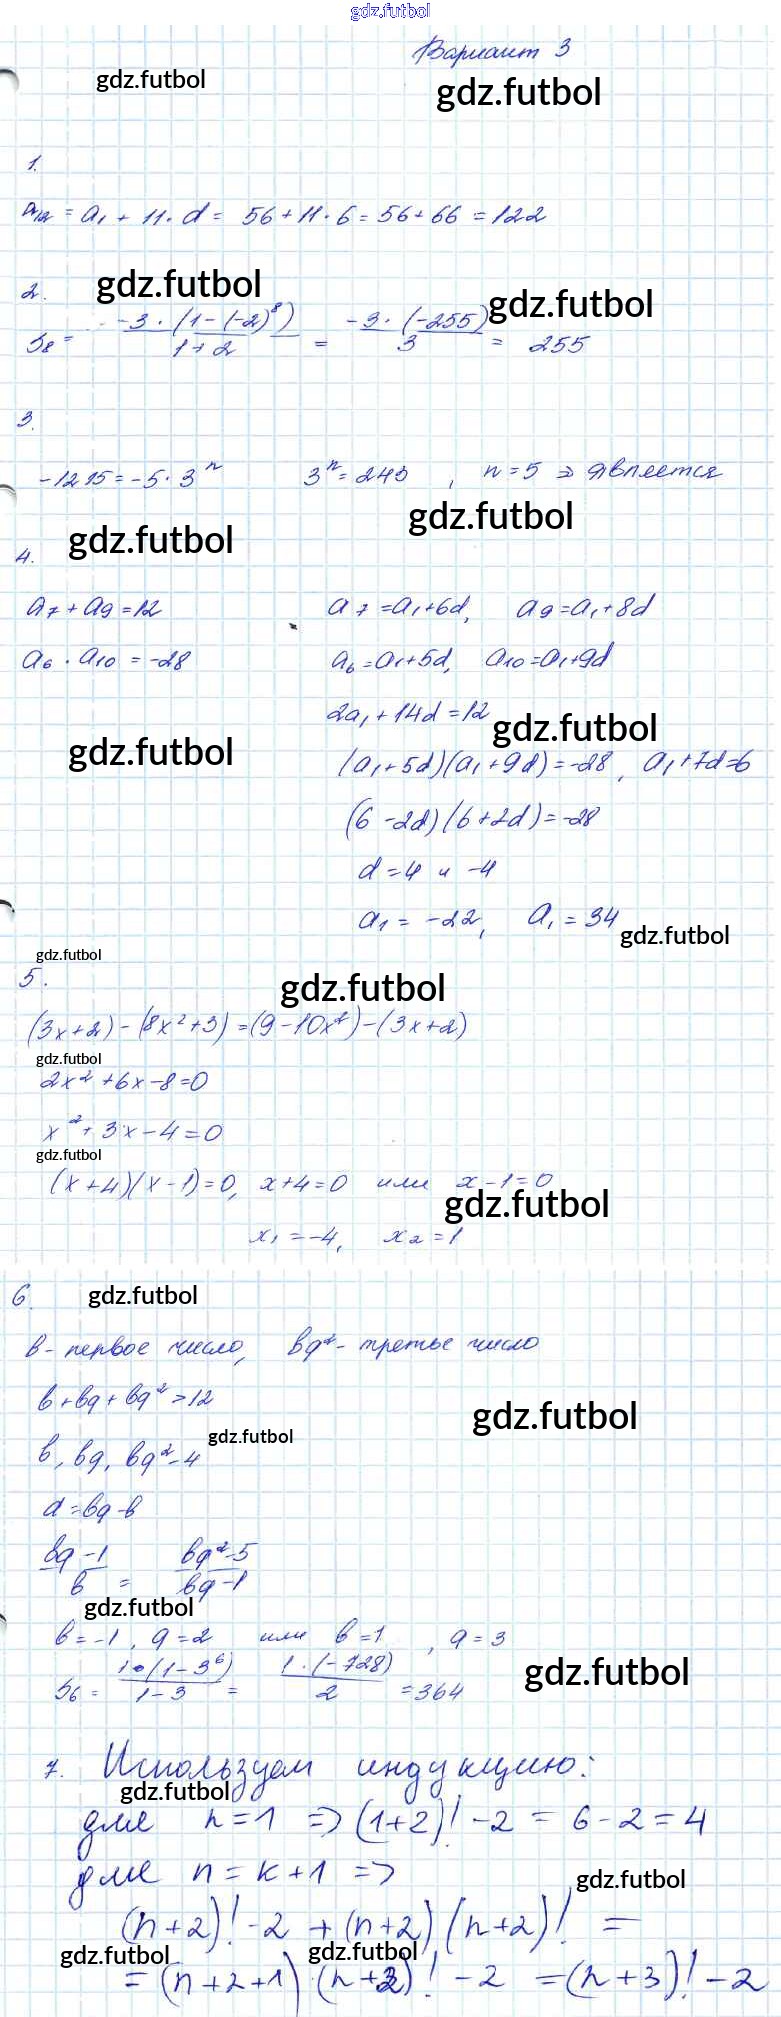 gdz.futbol
Вариант 3
gdz.futbol
gdz.futbol
1.
a₁₂ = a₁ + 11 · d = 56 + 11 · 6 = 56 + 66 = 122
2.
gdz.futbol
gdz.futbol
S₈ = -3 · (1 - (-2)⁸) / 1 + 2 = -3 · (-255) / 3 = 255
3.
-1215 = -5 · 3ⁿ 3ⁿ = 243 , n = 5 ⇒ является
gdz.futbol
gdz.futbol
4.
a₇ + a₉ = 12 a₇ = a₁ + 6d, a₉ = a₁ + 8d
a₆ · a₁₀ = -28 a₆ = a₁ + 5d, a₁₀ = a₁ + 9d
2a₁ + 14d = 12
gdz.futbol
gdz.futbol
(a₁ + 5d)(a₁ + 9d) = -28 , a₁ + 7d = 6
(6 - 2d)(6 + 2d) = -28
d = 4 и -4
a₁ = -22, a₁ = 34
gdz.futbol
gdz.futbol
5.
gdz.futbol
(3x + 2) - (8x² + 3) = (9 - 10x²) - (3x + 2)
gdz.futbol
2x² + 6x - 8 = 0
x² + 3x - 4 = 0
gdz.futbol
(x + 4)(x - 1) = 0, x + 4 = 0 или x - 1 = 0
gdz.futbol
x₁ = -4, x₂ = 1
6.
gdz.futbol
b - первое число, bq² - третье число
b + bq + bq² > 12
gdz.futbol
gdz.futbol
b, bq, bq² - 4
d = bq - b
bq - 1 / b = bq² - 5 / bq - 1
gdz.futbol
b = -1, q = 2 или b = 1 , q = 3
S₆ = 1 · (1 - 3⁶) / 1 - 3 = 1 · (-728) / 2 = 364
gdz.futbol
7. Используем индукцию:
gdz.futbol
для n = 1 => (1 + 2)! - 2 = 6 - 2 = 4
для n = k + 1 =>
gdz.futbol
(n + 2)! - 2 + (n + 2)(n + 2)! =
gdz.futbol
gdz.futbol
= (n + 2 + 1) · (n + 2)! - 2 = (n + 3)! - 2